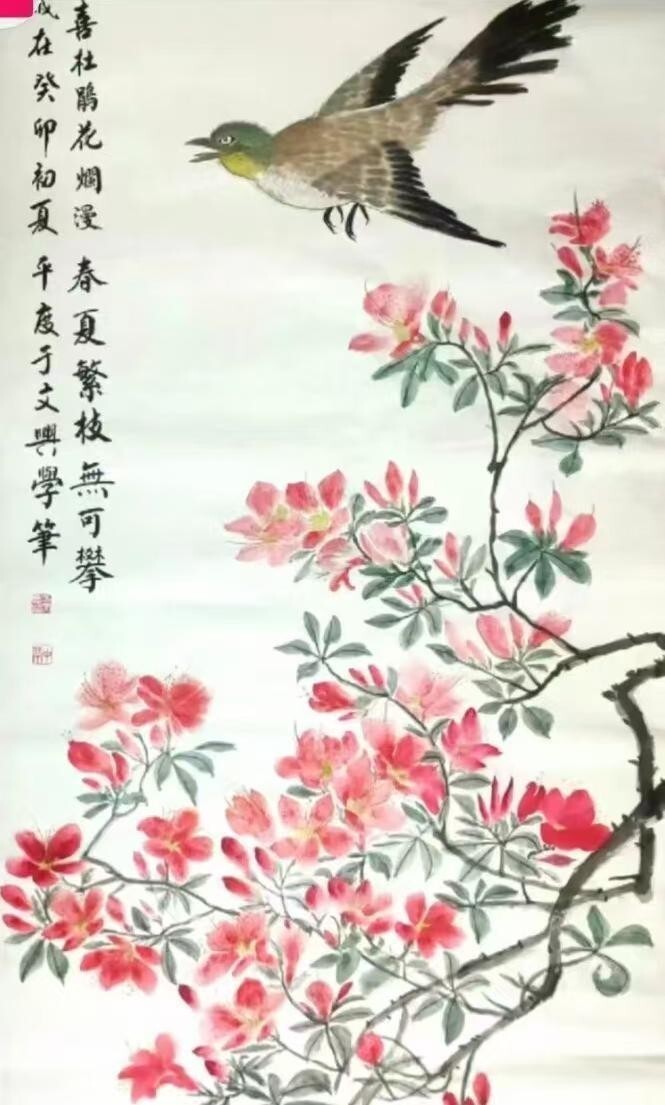 喜杜鹃花烂漫春夏繁枝無可攀
歲在癸卯初夏平度于文興學筆